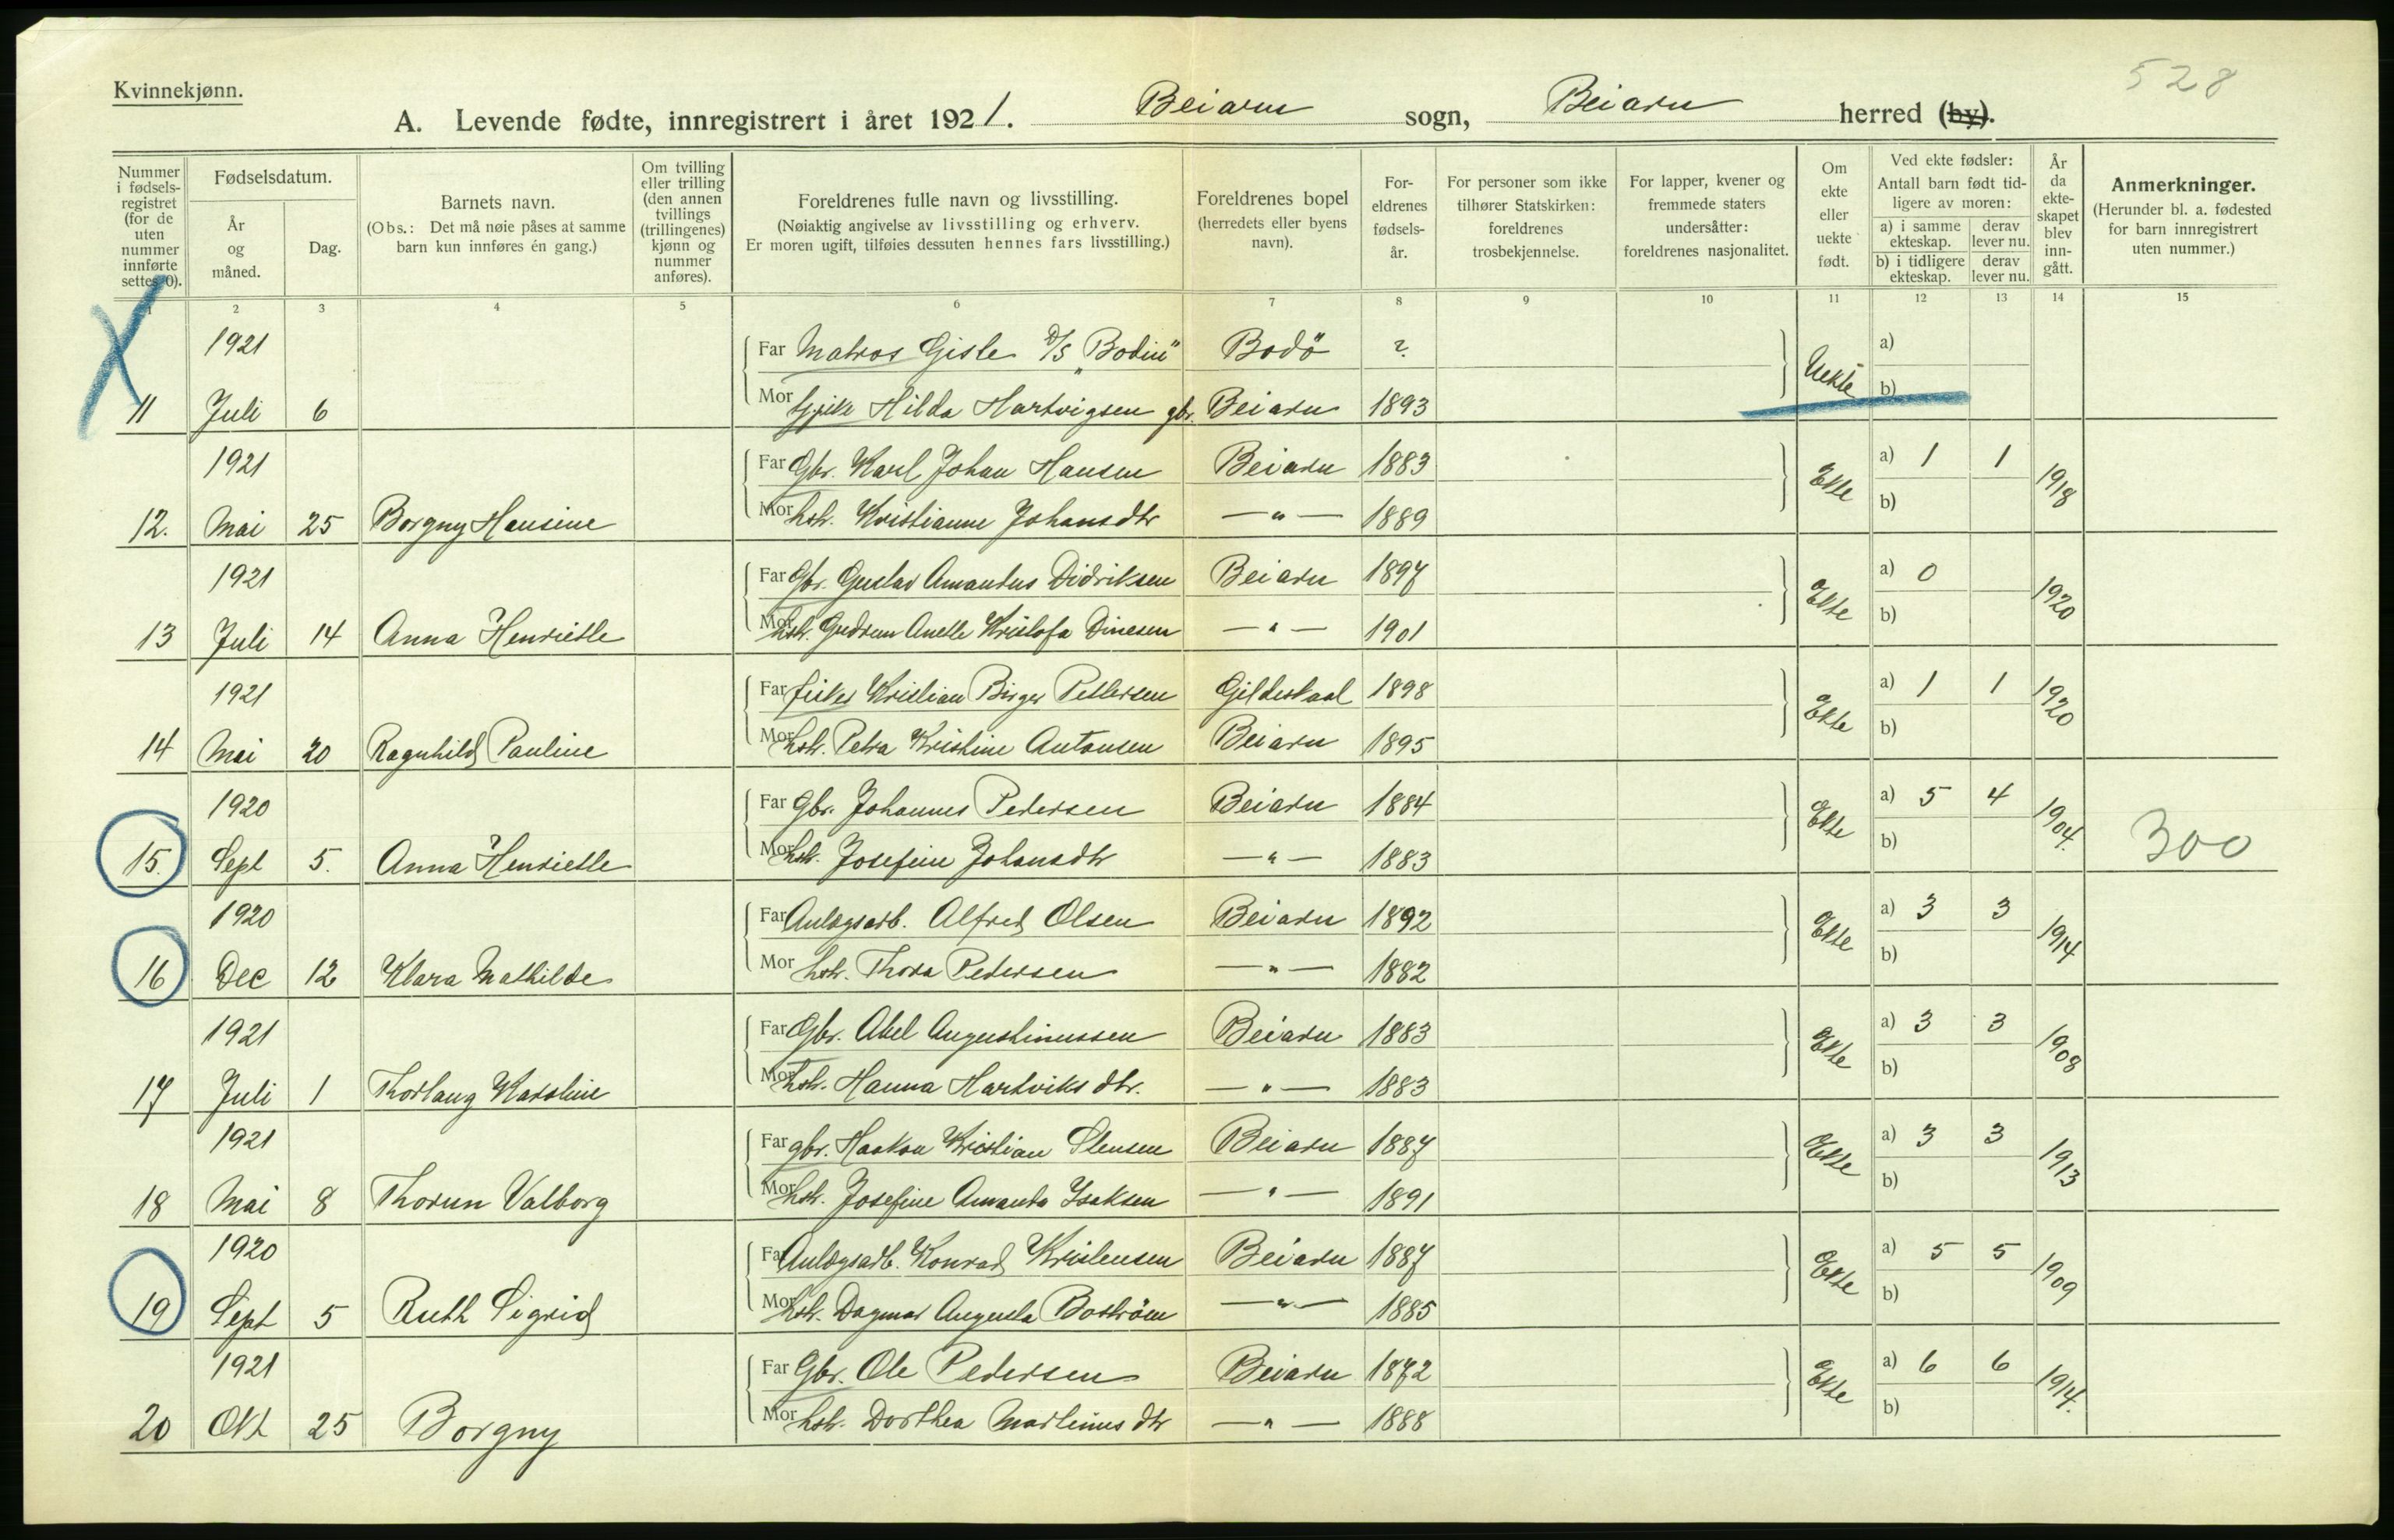 528
Kvinnekjønn.
A. Levende fødte, innregistrert i året 1921. Beiarn sogn, Beiarn herred (by).
Nummer i fødsels-registret (for de uten nummer innførte settes 0).
Fødselsdatum.
År og måned.
Dag.
Barnets navn.
(Obs.: Det må nøie påses at samme barn kun innføres én gang.)
Om tvilling eller trilling (den annen tvillings (trillingenes) kjønn og nummer anføres).
Foreldrenes fulle navn og livsstilling.
(Nøiaktig angivelse av livsstilling og erhverv.
Er moren ugift, tilføies dessuten hennes fars livsstilling.)
Foreldrenes bopel
(herredets eller byens navn).
For-eldrenes fødsels-år.
For personer som ikke tilhører Statskirken: foreldrenes trosbekjennelse.
For lapper, kvener og fremmede staters undersåtter: foreldrenes nasjonalitet.
Om ekte eller uekte født.
Ved ekte fødsler:
Antall barn født tid-ligere av moren:
a) i samme ekteskap.
derav lever nu.
b) i tidligere ekteskap.
derav lever nu.
År da ekte-skapet blev inn-gått.
Anmerkninger.
(Herunder bl. a. fødested for barn innregistrert uten nummer.)
1 2 3 4 5 6 7 8 9 10 11 12 13 14 15
1921 Far Matros Gisle D/S "Bodin" Bodö ? Uekte a)
11 Juli 6 Mor Hilda Hartvigsen gbr. Beiarn 1893 b)
1921 Far Gbr. Karl Johan Hansen Beiarn 1883 Ekte a) 1 1 1918
12. Mai 25 Borgny Hansine Mor hstr. Kristianne Johansdtr —"— 1889 b)
1921 Far Gbr. Gustav Amandus Didriksen Beiarn 1897 Ekte a) 0 1920
13 Juli 14 Anna Henriette Mor hstr. Gudrun Anette Kristofa Dinesen —"— 1901 b)
1921 Far fisker Kristian Birger Pettersen Gildeskaal 1898 Ekte a) 1 1 1920
14 Mai 20 Ragnhild Pauline Mor hstr. Petra Kristine Antonsen Beiarn 1895 b)
1920 Far Gbr. Johannes Pedersen Beiarn 1884 Ekte a) 5 4 1904. 300
15. Sept 5. Anna Henriette Mor hstr. Josefine Johansdtr —"— 1883 b)
1920 Far Anlægsarb. Alfred Olsen Beiarn 1892 Ekte a) 3 3 1914
16 Dec 12 Klara Mathilde Mor hstr. Thora Pedersen —"— 1882 b)
1921 Far Gbr. Abel Augustinussen Beiarn 1883 Ekte a) 3 3 1908
17 Juli 1 Thorlaug Karoline Mor hstr. Hanna Hartviksdtr. —"— 1883 b)
1921 Far gbr. Haakon Kristian Stensen Beiarn 1887 Ekte a) 3 3 1913
18 Mai 8 Thorun Valborg Mor hstr. Josefine Amanda Isaksen —"— 1891 b)
1920 Far Anlægsarb. Konrad Kristensen Beiarn 1887 Ekte a) 5 5 1909
19 Sept 5 Ruth Sigrid Mor hstr. Dagmar Augusta Boström —"— 1885 b)
1921 Far Gbr. Ole Pedersen Beiarn 1872 Ekte a) 6 6 1914.
20 Okt 25 Borgny Mor hstr. Dorthea Martinusdtr —"— 1888 b)